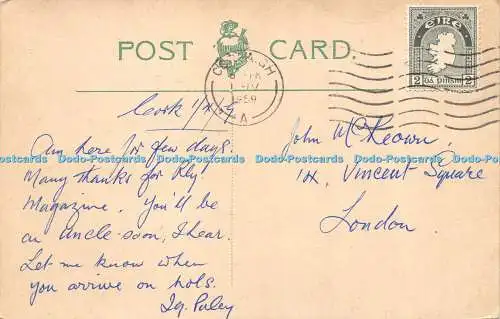 POST CARD.
CORCAIGH
1959
A
EIRE
2 2
Cork
Am here for few days.
Many thanks for Rly
Magazine. You'll be
an uncle soon, I hear.
Let me know when
you arrive on hols.
John McKeown,
Vincent Square
London.
Ldo-Postcards Ldo-Postcards Ldo-Postcards Ldo-Postcards Ldo-Postcards Ldo-Postcards